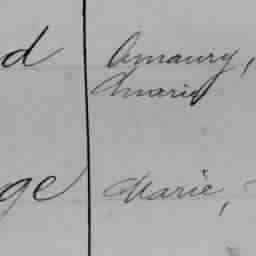 d Amaury,
Marie
ge Marie,